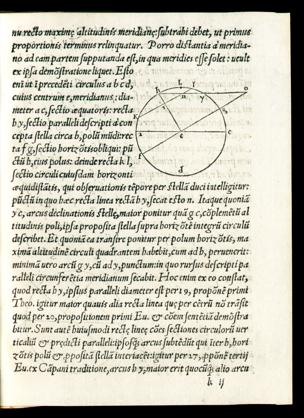 nu recto maximę altitudinis meridianę: subtrahi debet, ut primus
proportionis terminus relinquatur. Porro distantia à meridia-
no ad eam partem supputanda est, in qua meridies esse solet: ueluti
ex ipsa demõstratione liquet. Esto
eni ut ĩ precedẽti circulus a b c d,
cuius centrum e, meridianus: dia-
meter a c, sectio æquatoris: recta
b y, sectio paralleli descripti à con
cepta stella circa b, polũ mũdi: rec
ta f g, sectio horizõtis obliqui: pũ
ctũ h, eius polus: deinde recta k l,
sectio circuli cuiusdam horizonti
æquidistãtis, qui obseruationis tẽpore per stellã duci intelligitur:
pũctũ in quo hæc recta linea rectã b y, secat esto n. Itaque quoniã
y c, arcus declinationis stellæ, maior ponitur quã g c, cõplemẽtũ al
titudinis poli, ipsa proposita stella supra horizõtẽ integrũ circulũ
describet. Et quoniã ea transire ponitur per polum horizõtis, ma
ximã altitudinẽ circuli quadrantem habebit, cum ad h, peruenerit:
minimã uero arcũ g y, cũ ad y, punctum in quo rursus descripti pa
ralleli circunferẽtia meridianum secabit. Hoc num ex eo constat,
quod recta h y, ipsius paralleli diameter est per 19, propõne primi
Theo. igitur maior quauis alia recta linea quę per cẽtrũ nõ trãsit
quod per 20, propositionem primi Eu. & cõem sentẽtiã demõstra
bitur. Sunt autẽ huiusmodi rectę lineę cões sectiones circulorũ uer
ticaliũ & prædicti paralleli: ipsosq́; arcus subtẽdũt qui iter h, hori
zõtis polũ & ppositã stellã interiacẽt: igitur per 27, ppõnẽ tertij
Eu. ex Cãpani traditione, arcus h y, maior erit quocũq; alio arcu
b ij